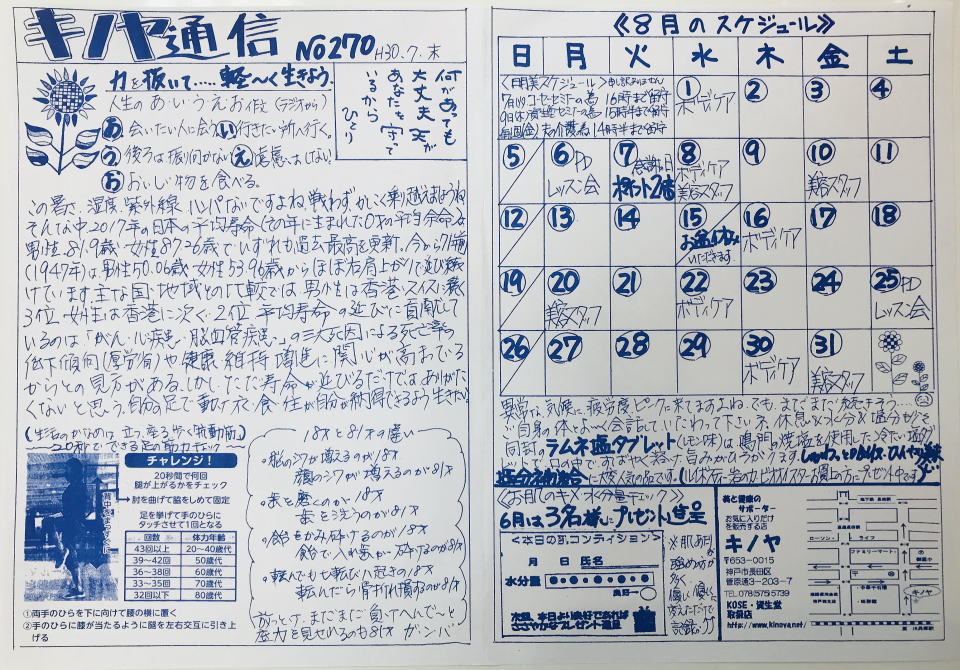 キノヤ通信 No270 H30.7.末
力を抜いて……軽〜く生きよう。
人生のあ・い・う・え・お作文(ラジオから)
あ 会いたい人に会う い 行きたい所へ行く。
う 後ろは振り向かない え 遠慮はしない
お おいしい物を食べる。
何があっても
大丈夫 天が
あなたを守って
いるから
ひとり
この暑さ、湿度、紫外線 ハンパないですよね 戦わず、かしこく乗り越えましょうね
そんな中2017年の日本の平均寿命(その年に生まれた0才の平均余命)は
男性、81.9歳 女性87.26歳でいずれも過去最高を更新。今から71年前
(1947年)は、男性50.06歳 女性53.96歳からほぼ右肩上がりで延び続
けています。主な国・地域との比較では、男性は香港、スイスに続く
3位、女性は香港に次ぐ2位、平均寿命の延びに貢献して
いるのは「がん、心疾患、脳血管疾患、」の三大死因による死亡率の
低下傾向(厚労省)や健康維持増進に関心が高までる
からとの見方がある。しかし、ただ寿命が延びるだけでは、ありがた
くないと思う。自分の足で動け 衣・食・住が自分が納得できるよう生きたい。
(生活のかなめは、立つ、座る、歩く「抗動筋」)
20秒でできる足の筋力チェック〜
チャレンジ!
20秒間で何回
腿が上がるかをチェック
肘を曲げて脇をしめて固定
足を挙げて手のひらに
タッチさせて1回となる
背中をまっすぐに
回数 体力年齢
43回以上 20〜40歳代
39〜42回 50歳代
36〜38回 60歳代
33〜35回 70歳代
32回以下 80歳代
①両手のひらを下に向けて腰の横に置く
②手のひらに膝が当たるように腿を左右交互に引き上
げる
18才と81才の違い
・脳のシワが増えるのが18才
顔のシワが増えるのが81才
・歯を磨くのが18才
歯を洗うのが81才
・飴をかみ砕けるのが18才
飴で入れ歯が砕けるのが81才
・転んでも七転び八起きの18才
転んだら骨折、寝こむのが81才
放っとけ、まだまだ負けへんで〜と
底力を見せれるのも81才 ガンバ
《8月のスケジュール》
日 月 火 水 木 金 土
〈明美スケジュール〉申し訳ありません
7日(火)コーセーセミナーの為 16時まで留守
9日(木)資生堂セミナーの為 15時半まで留守
毎週(金)夫の介護為 14時半まで留守
1 ボディケア
2
3
4
5
6 PD レッスン会
7 感謝日 ポイント2倍
8 ボディケア 美容スタッフ
9
10 美容スタッフ
11
12
13
14
15 お盆休み いただきます
16 ボディケア
17
18
19
20 美容スタッフ
21
22 ボディケア
23
24
25 PD レッスン会
26
27
28
29
30 ボディケア
31 美容スタッフ
異常な気候に、疲労度、ピークに来てますよね。でも、まだまだ続きそう……
ご自身の体とよ〜く会話していたわって下さい
同封のラムネ塩タブレット(レモン味)は鳴門の焼塩を使用した冷たい塩タ
《お肌のキメ・水分量チェック》
6月は3名様にプレゼント進呈
<本日の肌コンディション>
月 日 氏名
水分量
良好→
ただ今、本日より良好であれば
ささやかなプレゼント進呈
美と健康の
サポーター
お気に入りだけ
を販売する店
キノヤ
〒653-0015
神戸市長田区
菅原通3-203-7
TEL.078(575)5739
KOSE・資生堂
取扱店
http://www.kinoya.net/
ローソン
ライフ
ファミリーマート
キノヤ